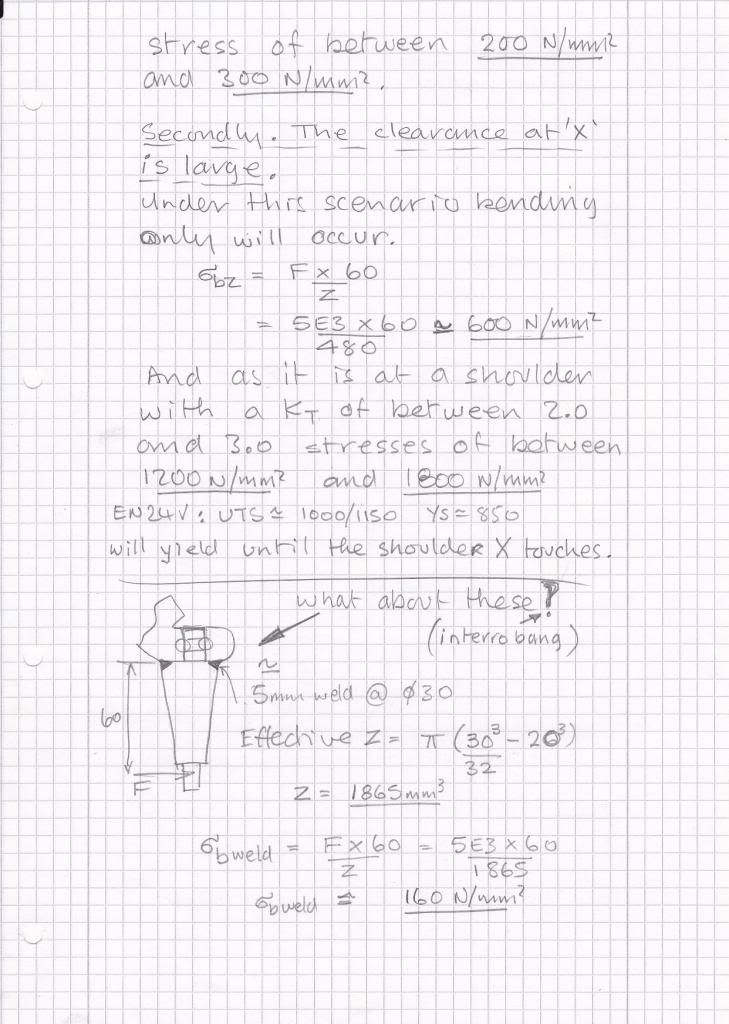 stress of between 200 N/mm²
and 300 N/mm².
Secondly. The clearance at 'X'
is large.
Under this scenario bending
only will occur.
σbz = F x 60
Z
= 5E3 x 60 ≃ 600 N/mm²
480
And as it is at a shoulder
with a KT of between 2.0
and 3.0 stresses of between
1200 N/mm² and 1800 N/mm²
EN24V: UTS ≃ 1000/1150 YS = 850
will yield until the shoulder X touches.
what about these?
(interrobang)
≃
5mm weld @ ø30
60
F
Effective Z = π (30³ - 20³)
32
Z = 1865mm³
σb weld = F x 60 = 5E3 x 60
Z 1865
σb weld ≃ 160 N/mm²